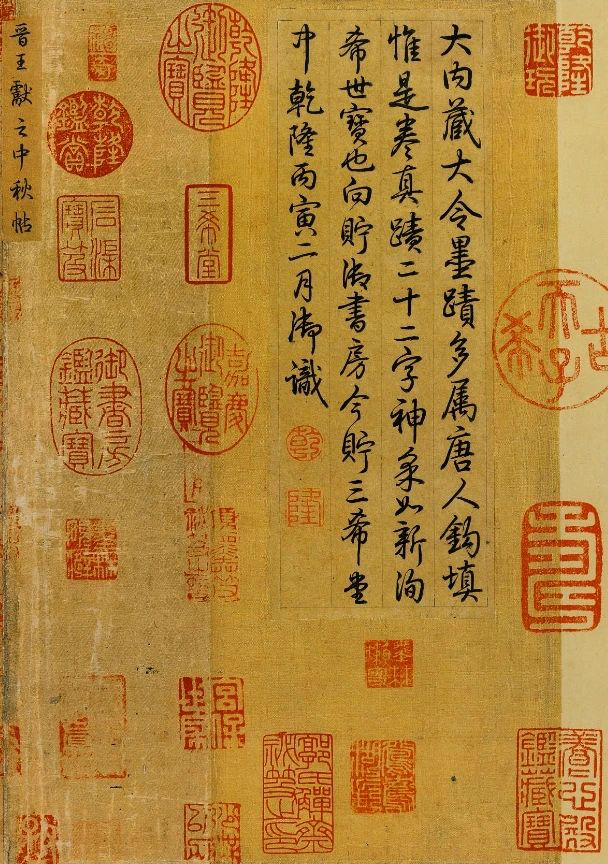 乾隆御玩
古希天子
壽
養心殿鑑藏寶
大内藏大令墨蹟多属唐人鈎填
惟是卷真蹟二十二字神采如新洵
希世寶也向貯御書房今貯三希堂
中乾隆丙寅二月御識
乾
隆
郭氏觶齋祕笈之印
乾隆御覽之寶
三希堂
嘉慶御覽之寶
乾隆鑑賞
石渠寶笈
御書房鑑藏寶
晋王獻之中秋帖